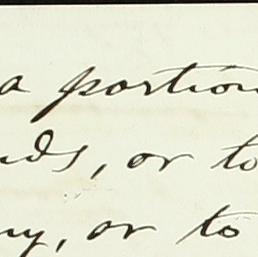 a portion
nds, or to
ny, or to